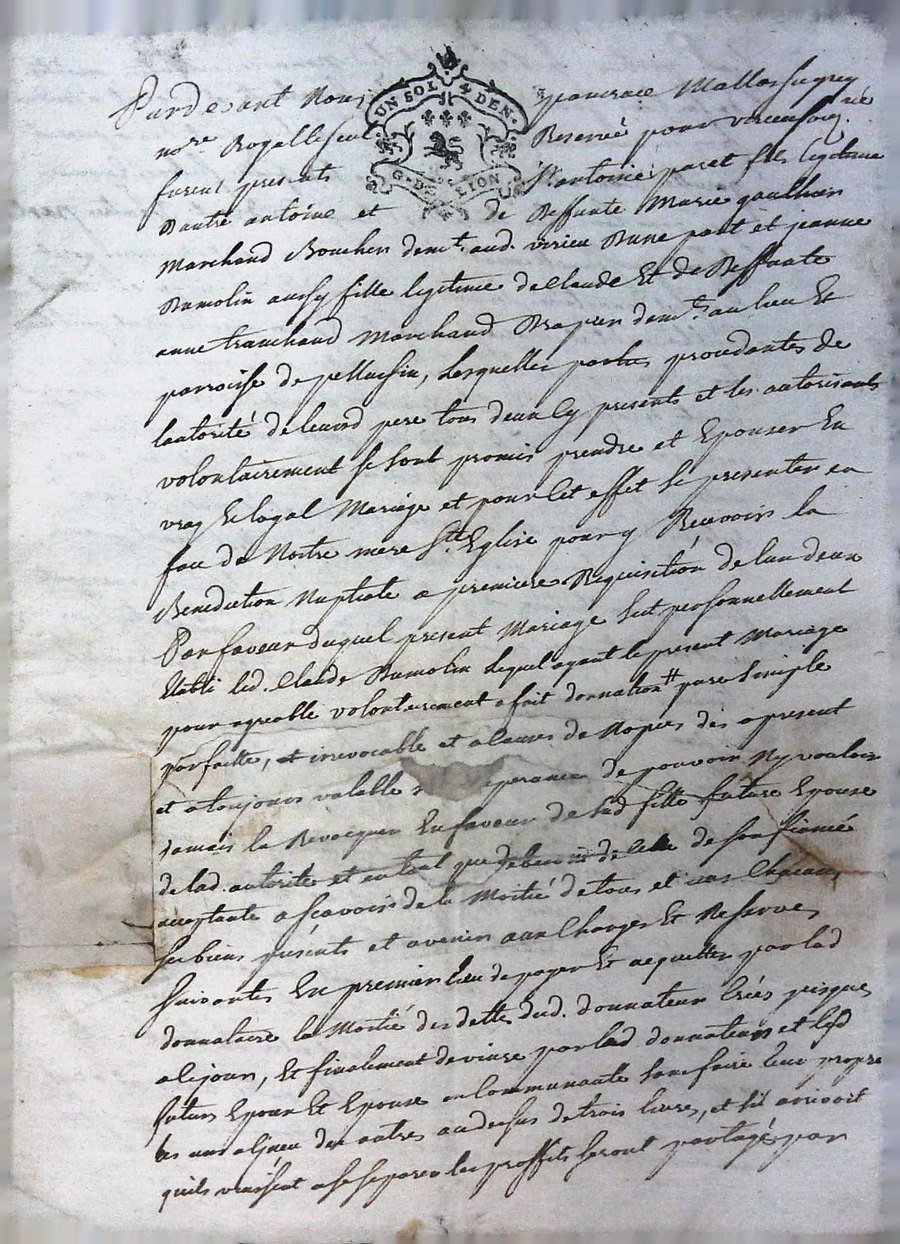 UN SOL 4 DEN.
G. DE LYON
Pardevant Nous Jeanerace Mallassagny
nore Royalle Reservé pour virieu soug.né
furent presents Sr antoine paret fils legitime
dautre antoine et de deffunte Marie gaulthier
Marchand Boucher demt. aud. virieu Dune part et jeanne
Dumolin aussy fille legitime de Claude Et de deffunte
anne tranchand Marchand Drapier demt. au lieu Et
parroisse de pellussin, Lesquelles parties procedantes de
lautorité de leursd pere tous deux Cy presents et les autorisants
volontairement se sont promis prendre et Epouser En
vray Et logal Mariage et pour Cet effet se presenter en
face de Nostre mere Ste. Eglise pour y Recevoir la
Benediction Nuptiale a premiere Requisition de lun deux
Par faveur duquel present Mariage sest personnellement
Etabli led. Claude Dumolin lequel ayant le present Mariage
pour agreable volontairement a fait donnation pure simple
parfaitte, et irrevocable et a Cause de Nopces des a present
et a toujours valable de pouvoir Ny vouloir
Jamais la Revocquer En faveur de sad fille future Epouse
de lad. autorite et en tant que de besoin de Celle de son fiancé
acceptante a scavoir de la Moitié de tous et uns Chacuns
ses biens présents et avenir aux Charges Et Reserves
suivantes En premier lieu de payer Et acquitter par lad
donnataire la Moitié des dettes dud. donnateur Crées jusques
a Ce jour, Et finalement de vivre par led donnateur et lesd
futurs Epoux Et Epouse en Communauté sans faire leur propre
les uns a ljnsu des autres au dessus de trois livres, et sil arrivoit
quils vinssent a se separer les proffits seront partagés par